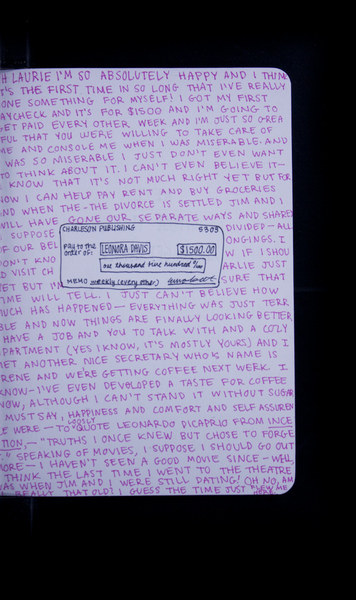 H LAURIE I'M SO ABSOLUTELY HAPPY AND I THINK
IT'S THE FIRST TIME IN SO LONG THAT I'VE REALLY
DONE SOMETHING FOR MYSELF! I GOT MY FIRST
PAYCHECK AND IT'S FOR $1500 AND I'M GOING TO
GET PAID EVERY OTHER WEEK AND I'M JUST SO GREA
FUL THAT YOU WERE WILLING TO TAKE CARE OF
ME AND CONSOLE ME WHEN I WAS MISERABLE. AND
WAS SO MISERABLE I JUST DON'T EVEN WANT
TO THINK ABOUT IT. I CAN'T EVEN BELIEVE IT—
KNOW THAT IT'S NOT MUCH RIGHT YET BUT FOR
NOW I CAN HELP PAY RENT AND BUY GROCERIES
AND WHEN THE-THE DIVORCE IS SETTLED JIM AND I
WILL HAVE GONE OUR SEPARATE WAYS AND SHARED
I SUPPOSE DIVIDED—ALL
OF OUR BEL ONGINGS. I
DON'T KNO W IF I SHOU
D VISIT CH ARLIE JUST
YET BUT IN SURE THAT
CHARLESON PUBLISHING 5303
Pay to the order of: LEONORA DAVIS $1500.00
one thousand five hundred 0/100
MEMO weekly (every other)
TIME WILL TELL. I JUST CAN'T BELIEVE HOW
MUCH HAS HAPPENED—EVERYTHING WAS JUST TERR
BLE AND NOW THINGS ARE FINALLY LOOKING BETTER
I HAVE A JOB AND YOU TO TALK WITH AND A COZY
APARTMENT (YES I KNOW, IT'S MOSTLY YOURS) AND I
MET ANOTHER NICE SECRETARY WHO'S NAME IS
RENE AND WE'RE GETTING COFFEE NEXT WEEK. I
KNOW—I'VE EVEN DEVELOPED A TASTE FOR COFFEE
NOW, ALTHOUGH I CAN'T STAND IT WITHOUT SUGAR
I MUST SAY, HAPPINESS AND COMFORT AND SELF ASSUREN
CE WERE—TO LOOSELY QUOTE LEONARDO DICAPRIO FROM INCE
TION,—"TRUTHS I ONCE KNEW BUT CHOSE TO FORGE
." SPEAKING OF MOVIES, I SUPPOSE I SHOULD GO OUT
MORE—I HAVEN'T SEEN A GOOD MOVIE SINCE—WELL,
I THINK THE LAST TIME I WENT TO THE THEATRE
WAS WHEN JIM AND I WERE STILL DATING! OH NO, AM
I REALLY THAT OLD? I GUESS THE TIME JUST FLEW ME